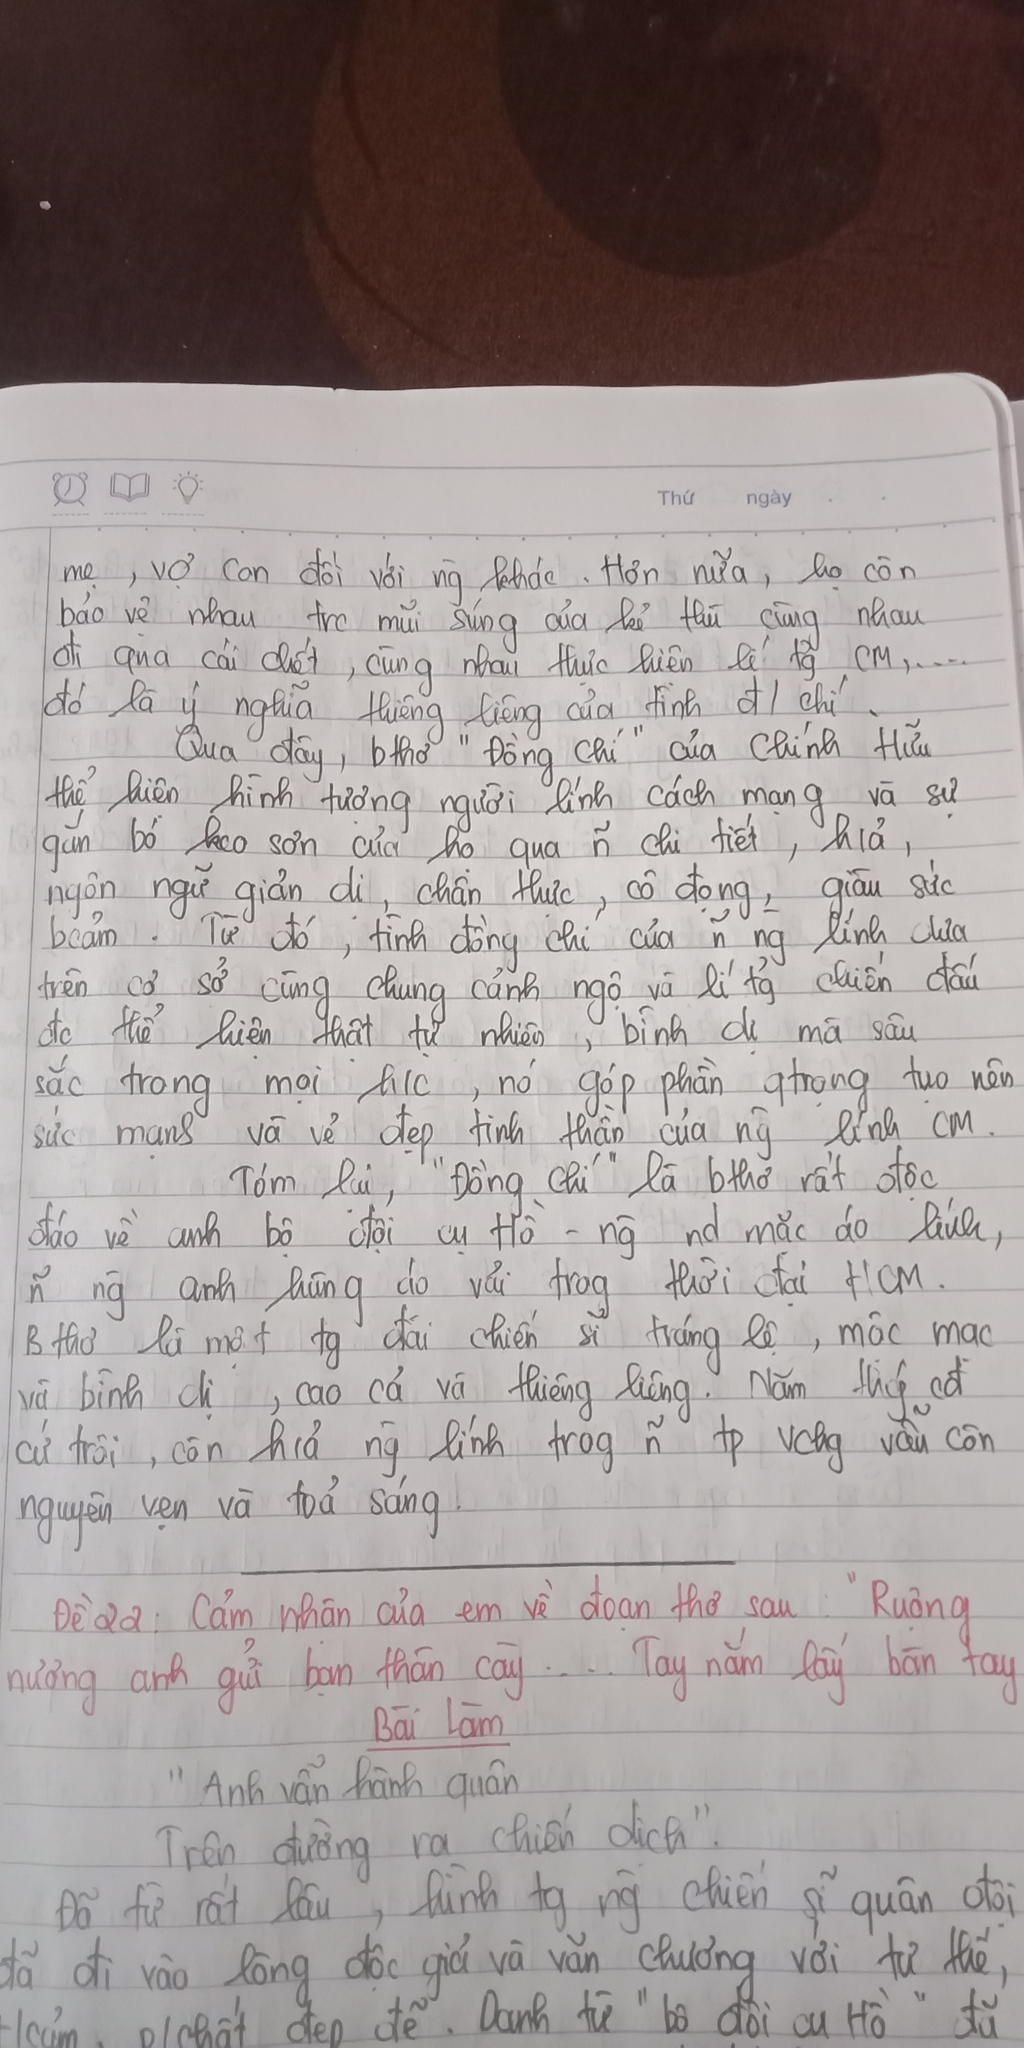 Thứ ngày
mẹ, vợ con đối với ng khác. Hơn nữa, họ còn
bảo vệ nhau trc mũi súng của kẻ thù cùng nhau
đi qua cái chết, cùng nhau thực hiện lí tg CM,....
đó là ý nghĩa thiêng liêng của tình đ/chí.
Qua đây, bthơ "Đồng chí" của Chính Hữu
thể hiện hình tượng người lính cách mạng và sự
gắn bó keo sơn của họ qua ñ chi tiết, h/ả,
ngôn ngữ giản dị, chân thực, cô đọng, giàu sức
bcảm. Từ đó, tình đồng chí của ñ ng lính dựa
trên cơ sở cùng chung cảnh ngộ và lí tg chiến đấu
đc thể hiện thật tự nhiên, bình dị mà sâu
sắc trong mọi h/c, nó góp phần qtrọng tạo nên
sức mạnh và vẻ đẹp tinh thần của ng lính CM.
Tóm lại, "Đồng chí" là bthơ rất độc
đáo về anh bộ đội cụ Hồ - ng nd mặc áo lính,
ñ ng anh hùng áo vải trog thời đại HCM.
B thơ là một tg đài chiến sĩ tráng lệ, mộc mạc
và bình dị, cao cả và thiêng liêng. Năm thág cứ
cứ trôi, còn h/ả ng lính trog ñ tp vchg vẫn còn
nguyên vẹn và toả sáng.
Đề 22: Cảm nhận của em về đoạn thơ sau: "Ruộng
nương anh gửi bạn thân cày .... Tay nắm lấy bàn tay
Bài làm
"Anh vẫn hành quân
Trên đường ra chiến dịch".
Đã từ rất lâu, hình tg ng chiến sĩ quân đội
đã đi vào lòng độc giả và văn chương với tư thế,
t/cảm, p/chất đẹp đẽ. Danh từ "bộ đội cụ Hồ" đã